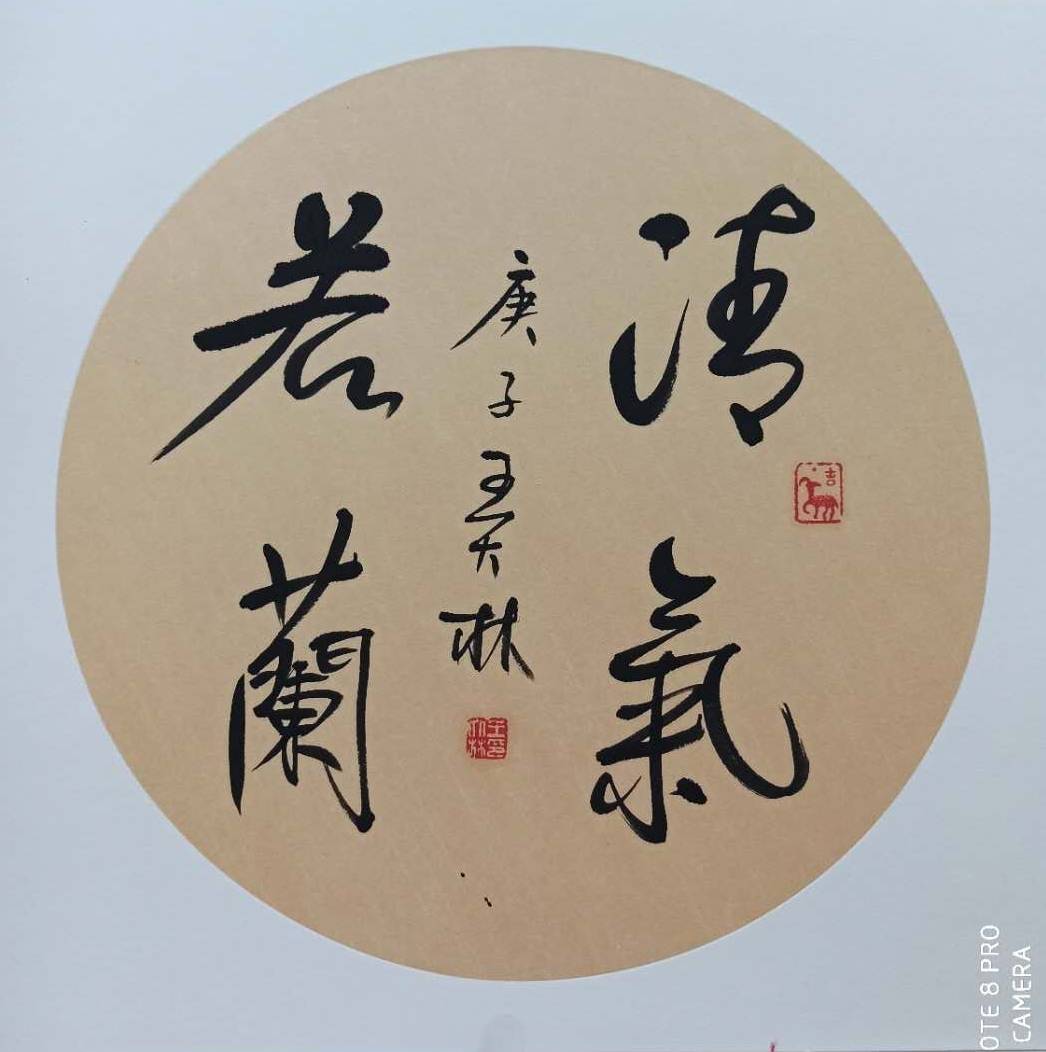 清氣
若蘭
庚子王天林
吉
OTE 8 PRO
CAMERA